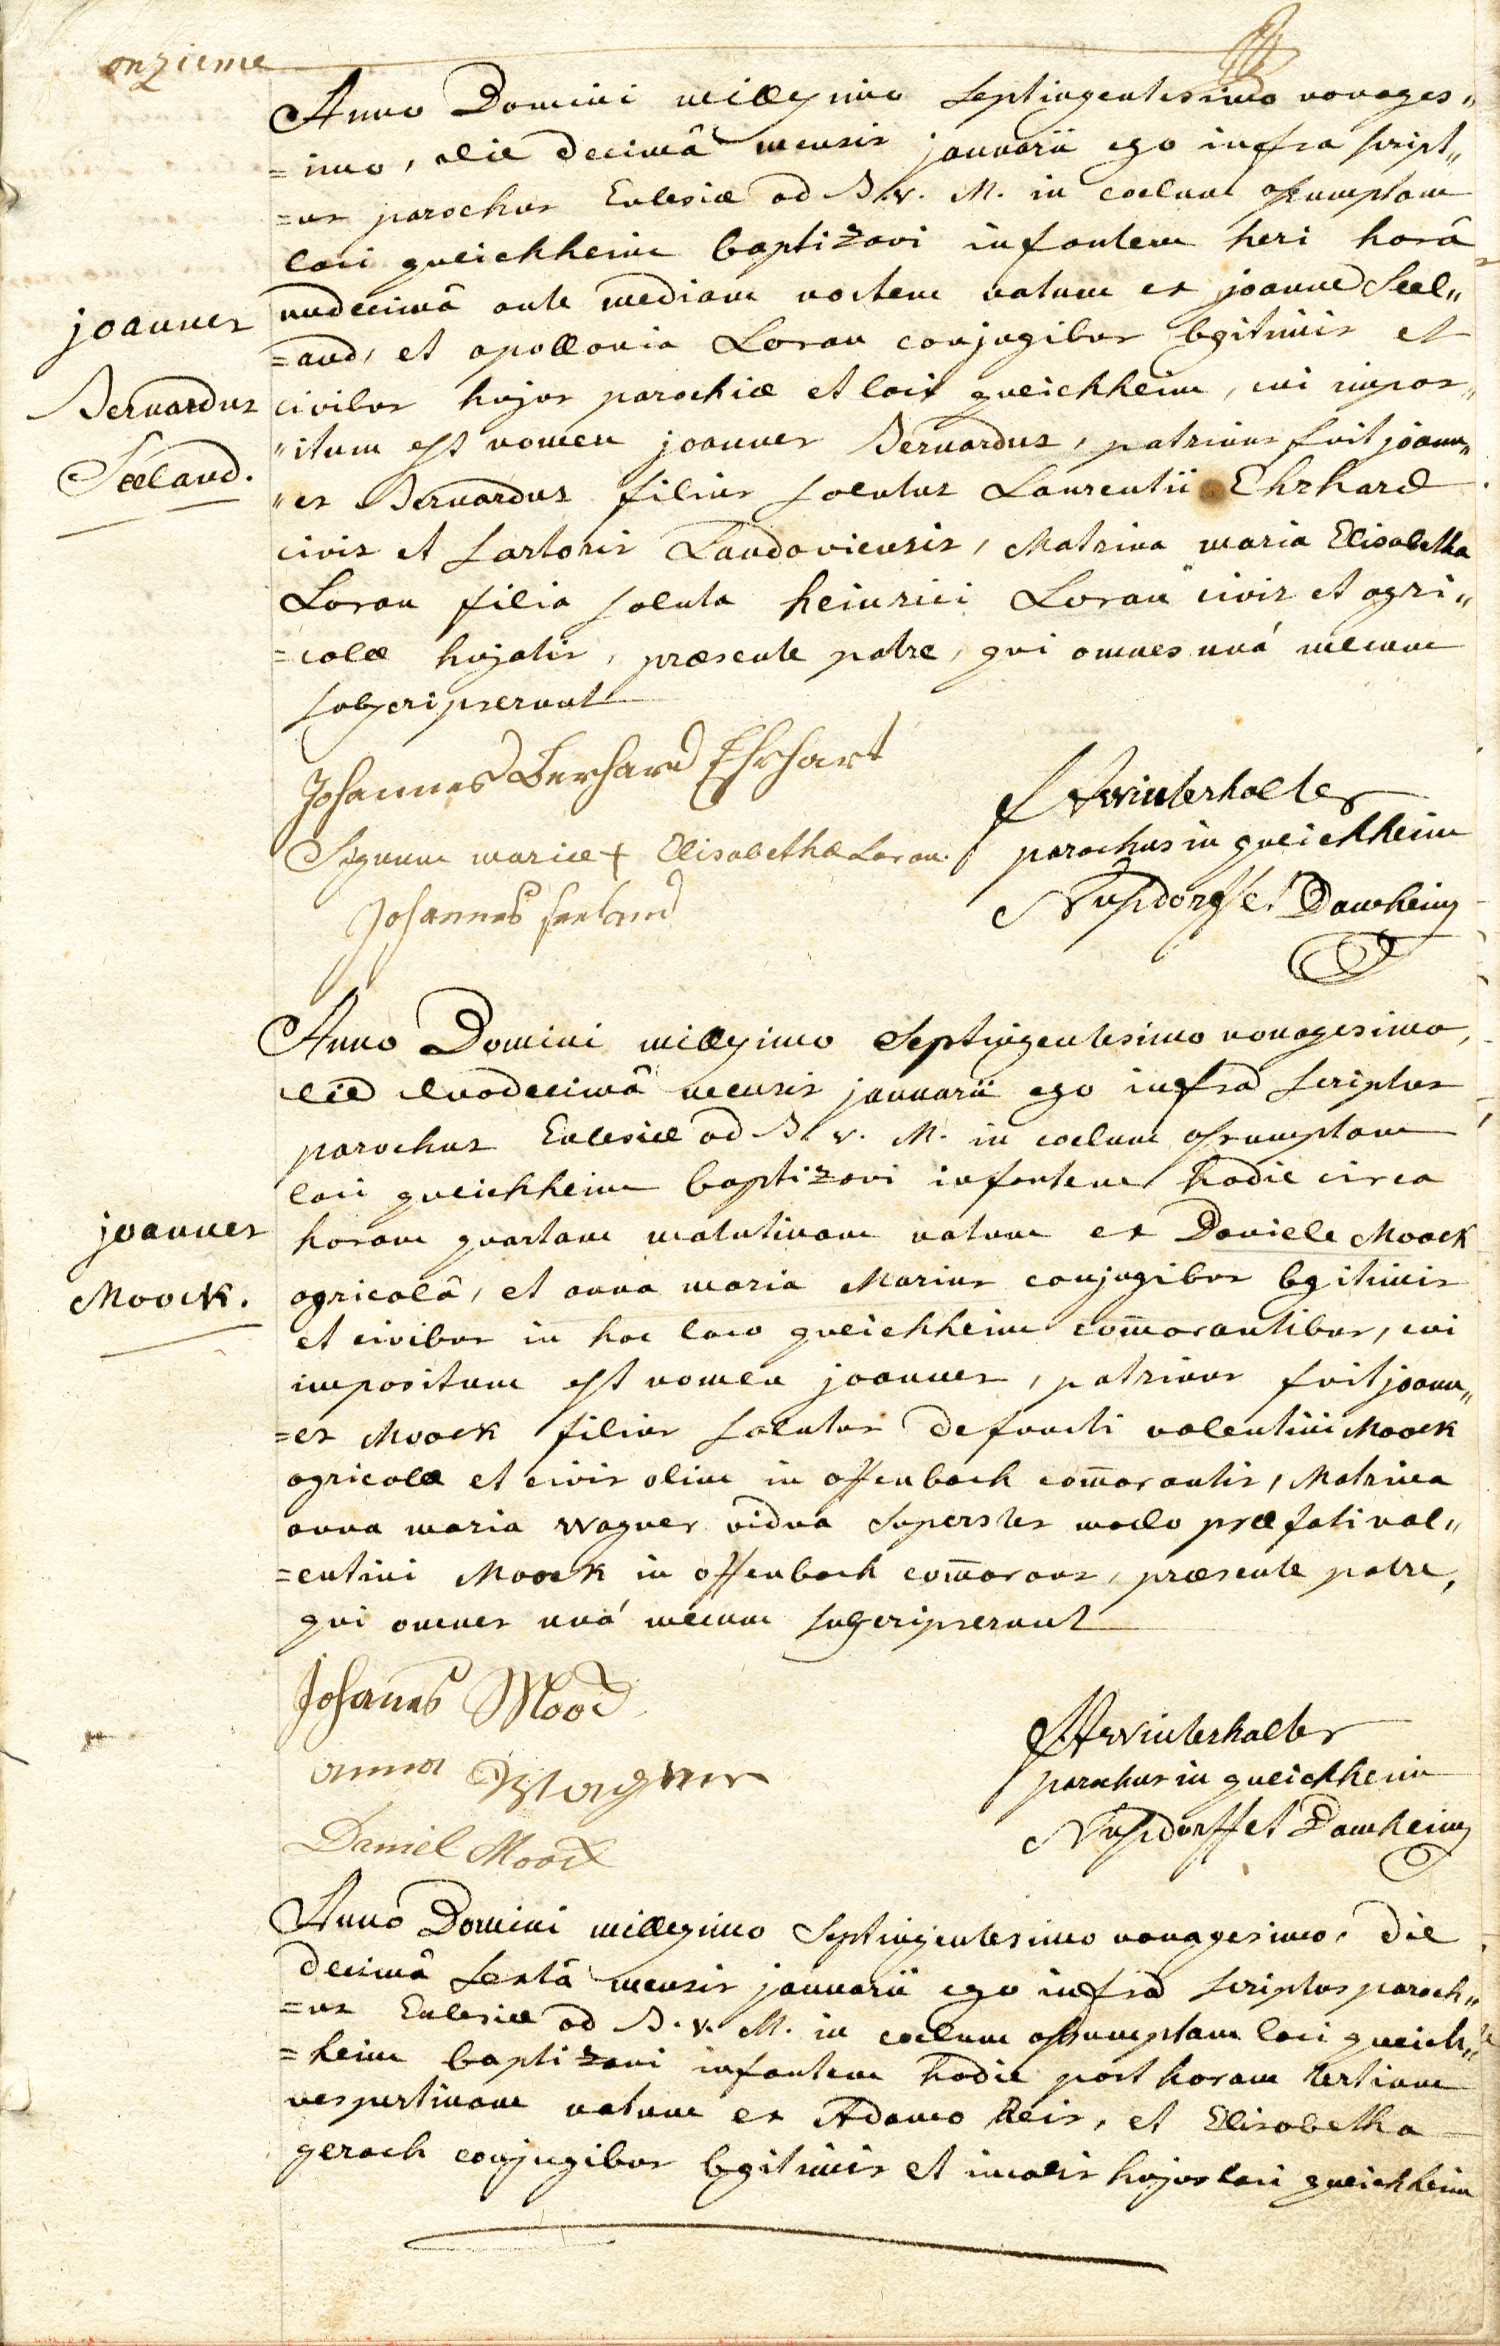 onzieme
Anno Domini millesimo Septingentesimo nonages„
=imo, die decimâ mensis januarii ego infra script„
=us parochus Ecclesiæ ad B. v. M. in coelum assumptam
loci queichheim baptizavi infantem heri horâ
undecimâ ante mediam noctem natum ex joanne Seel„
=and, et apollonia Loran conjugibus legitimis et
civibus hujus parochiæ et loci queichheim, cui impos„
„itum est nomen joannes Bernardus, patrinus fuit joann„
„es Bernardus filius solutus Laurentii Ehrhard
civis et sartoris Landaviensis, Matrina maria Elisabetha
Loran filia soluta heinrici Loran civis et agri„
=colæ hujatis, præsente patre, qui omnes unà mecum
subscripserunt
joannes
Bernardus
Seeland.
Johannes Berhard Ehrhart
Signum mariæ + Elisabethæ Loran.
Johannes Seeland
Winterhalter
parochus in queichheim
Nusdorff et Damheim
Anno Domini millesimo Septingentesimo nonagesimo,
die duodecimâ mensis januarii ego infra scriptus
parochus Ecclesiæ ad B. v. M. in coelum assumptam
loci queichheim baptizavi infantem hodie circa
horam quartam matutinam natum ex Daniele Moock
agricolâ, et anna maria Marius conjugibus legitimis
et civibus in hoc loco queichheim com̄orantibus, cui
impositum est nomen joannes, patrinus fuit joann„
=es Moock filius solutus defuncti valentini Moock
agricolæ et civis olim in offenbach com̄orantis, Matrina
anna maria Wagner vidua superstes modo præfati val„
=entini Moock in offenbach com̄orans, præsente patre,
qui omnes unà mecum subscripserunt
joannes
Moock.
Johanes Moock
anna Wagner
Daniel Moock
Winterhalter
parochus in queichheim
Nusdorff et Damheim
Anno Domini millesimo Septingentesimo nonagesimo, die
decimâ sextâ mensis januarii ego infra scriptus paroch„
=us Ecclesiæ ad B. v. M. in coelum assumptam loci queich„
=heim baptizavi infantem hodie post horam tertiam
vespertinam natum ex Adamo Reis, et Elisabetha
gerach conjugibus legitimis et incolis hujus loci queichheim